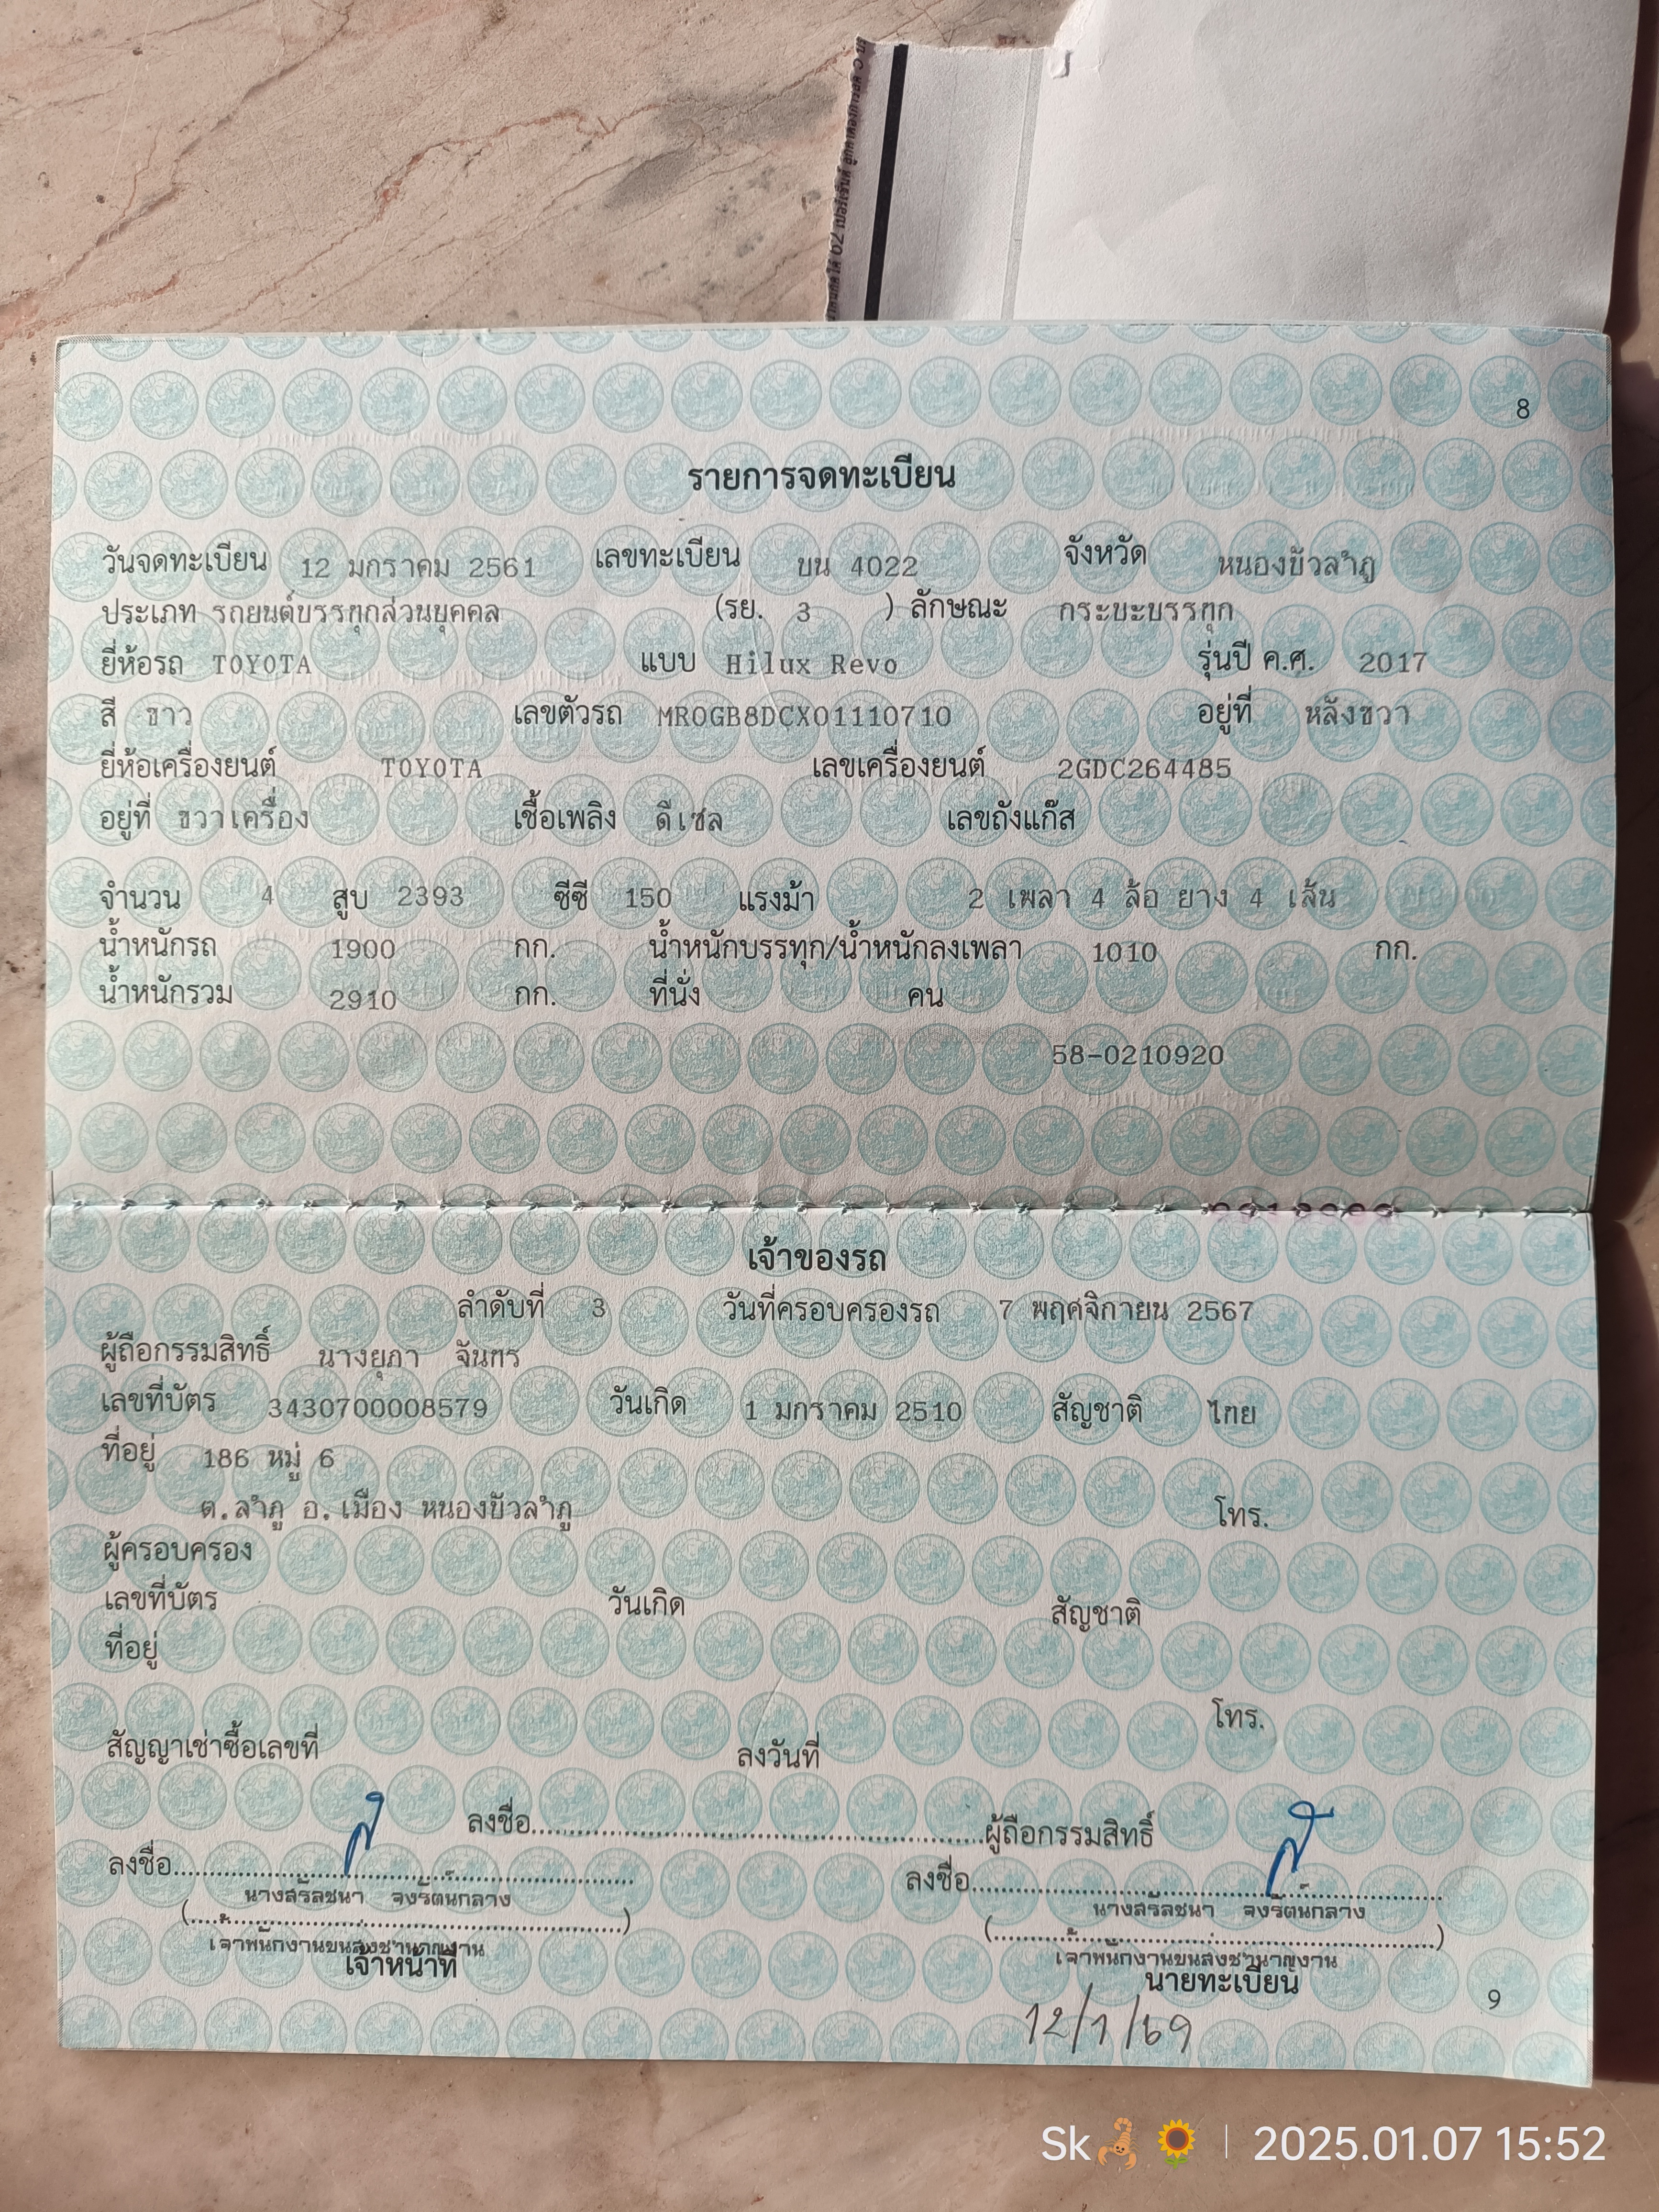 8
รายการจดทะเบียน
วันจดทะเบียน 12 มกราคม 2561 เลขทะเบียน บน 4022 จังหวัด หนองบัวลำภู
ประเภท รถยนต์บรรทุกส่วนบุคคล (รย. 3 ) ลักษณะ กระบะบรรทุก
ยี่ห้อรถ TOYOTA แบบ Hilux Revo รุ่นปี ค.ศ. 2017
สี ขาว เลขตัวรถ MR0GB8DCX01110710 อยู่ที่ หลังขวา
ยี่ห้อเครื่องยนต์ TOYOTA เลขเครื่องยนต์ 2GDC264485
อยู่ที่ ขวาเครื่อง เชื้อเพลิง ดีเซล เลขถังแก๊ส
จำนวน 4 สูบ 2393 ซีซี 150 แรงม้า 2 เพลา 4 ล้อ ยาง 4 เส้น
น้ำหนักรถ 1900 กก. น้ำหนักบรรทุก/น้ำหนักลงเพลา 1010 กก.
น้ำหนักรวม 2910 กก. ที่นั่ง คน
58-0210920
เจ้าของรถ
ลำดับที่ 3 วันที่ครอบครองรถ 7 พฤศจิกายน 2567
ผู้ถือกรรมสิทธิ์ นางยุภา จันทร
เลขที่บัตร 3430700008579 วันเกิด 1 มกราคม 2510 สัญชาติ ไทย
ที่อยู่ 186 หมู่ 6
ต.ลำภู อ.เมือง หนองบัวลำภู โทร.
ผู้ครอบครอง
เลขที่บัตร วันเกิด สัญชาติ
ที่อยู่
โทร.
สัญญาเช่าซื้อเลขที่ ลงวันที่
ลงชื่อ ผู้ถือกรรมสิทธิ์
ลงชื่อ ลงชื่อ
นางสรัลชนา จงรัตนกลาง นางสรัลชนา จงรัตนกลาง
เจ้าพนักงานขนส่งชำนาญงาน เจ้าพนักงานขนส่งชำนาญงาน
เจ้าหน้าที่ นายทะเบียน
12/1/69
9
Sk🦂🌻 | 2025.01.07 15:52